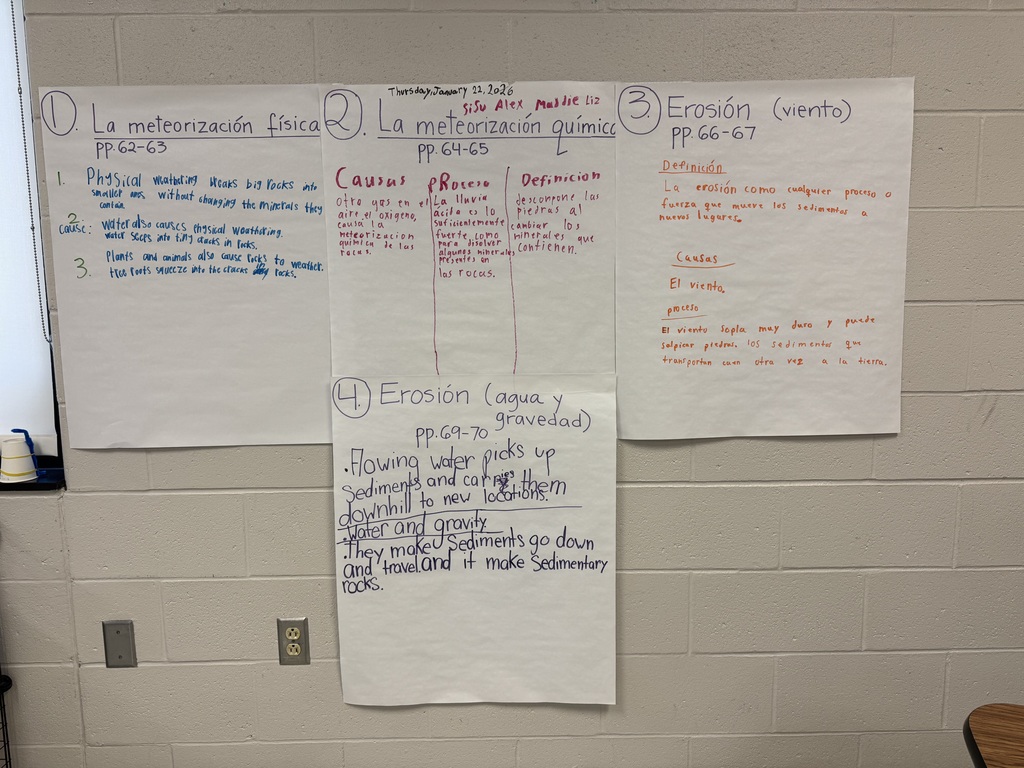 1. La meteorización física
pp. 62-63
1. Physical weathering breaks big rocks into
smaller ones without changing the minerals they
contain
2
cause: water also causes physical weathering.
water seeps into tiny cracks in rocks.
3. Plants and animals also cause rocks to weather.
tree roots squeeze into the cracks in rocks.
Thursday, January 22, 2026
Sisu Alex Maddie Liz
2. La meteorización químic
pp. 64-65
Causas
Otro gas en el
aire el oxigeno,
causa la
meteorizacion
quimica de las
rocas.
pRoceso
La lluvia
ácida es lo
suficientemente
fuerte como
para disolver
algunos minerales
presentes en
las rocas.
Definicion
descompone las
piedras al
cambiar los
minerales que
contienen.
3. Erosión (viento)
pp. 66-67
Definición
La erosión como cualquier proceso o
fuerza que mueve los sedimentos a
nuevos lugares.
Causas
El viento.
proceso
El viento sopla muy duro y puede
salpicar piedras. los sedimentos que
transportan caen otra vez a la tierra.
4. Erosión (agua y
gravedad)
pp. 69-70
.Flowing water picks up
Sediments and carries them
downhill to new locations.
.Water and gravity
.They make Sediments go down
and travel.and it make Sedimentary
rocks.